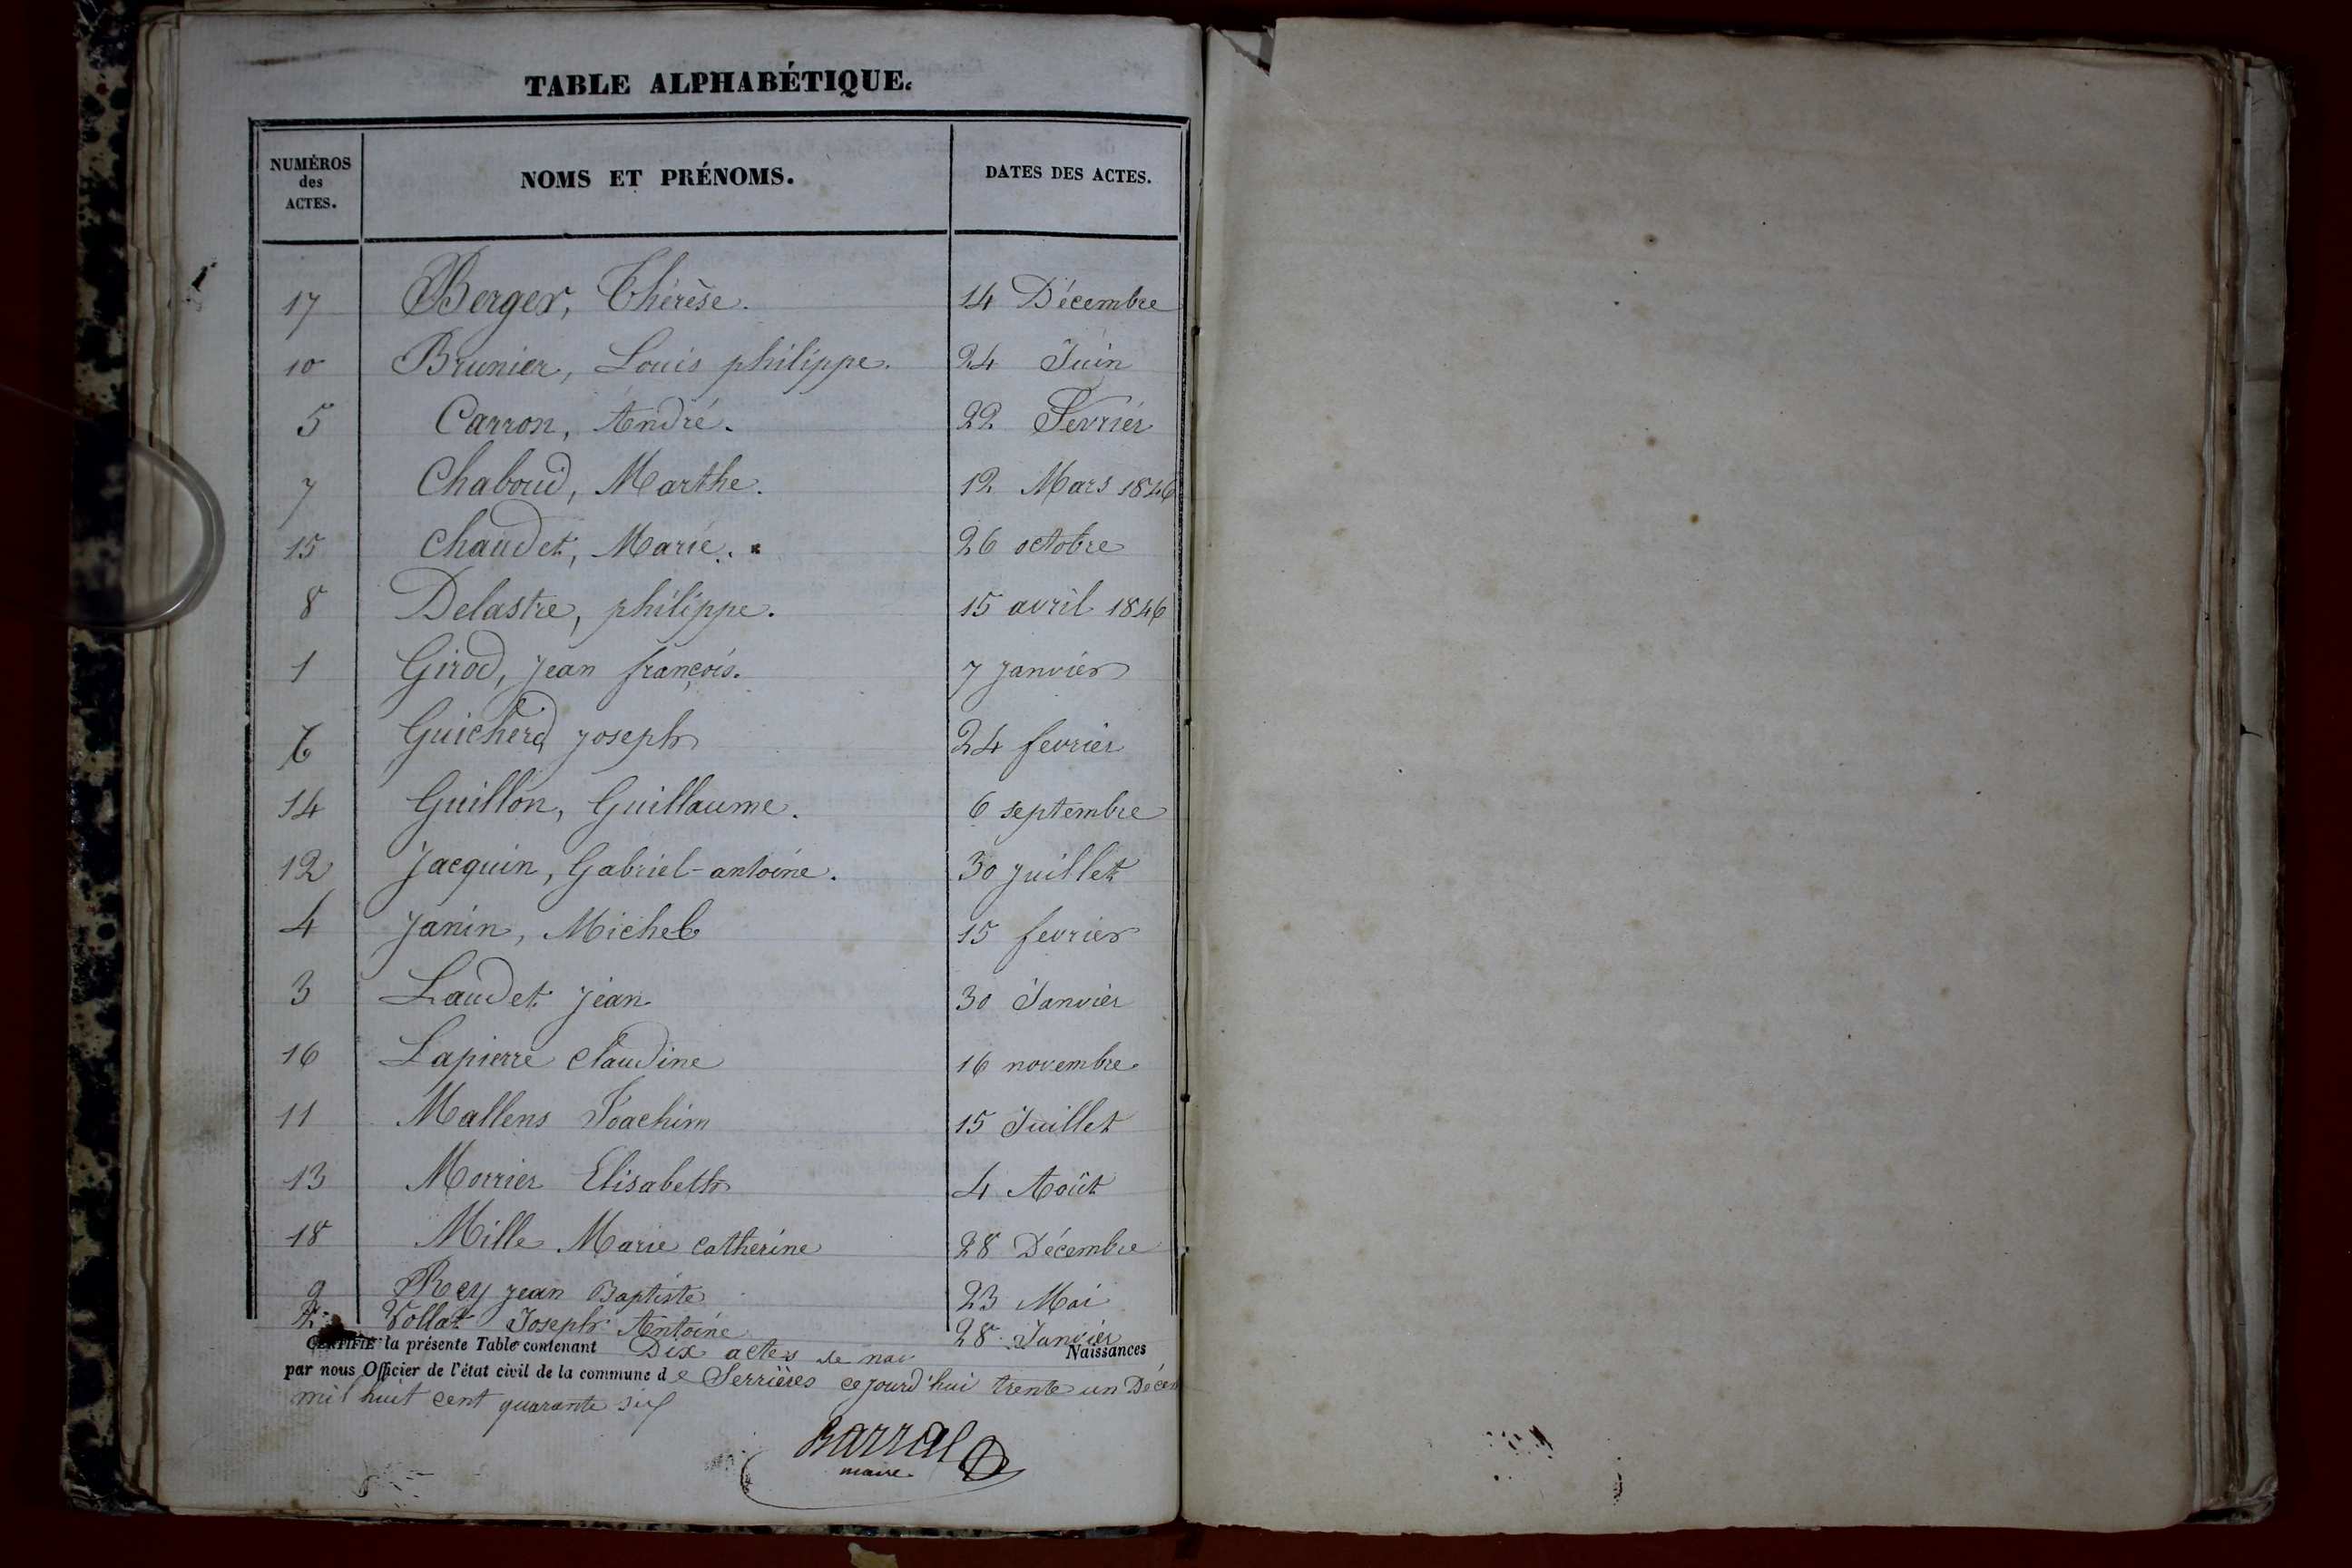 TABLE ALPHABÉTIQUE.
NUMÉROS des ACTES. NOMS ET PRÉNOMS. DATES DES ACTES.
17 Berger, Thérèse. 14 Décembre
10 Brunier, Louis philippe. 24 Juin
5 Carron, André. 22 Fevrier
7 Chaboud, Marthe. 12 Mars 1846
15 Chaudet, Marie. 26 octobre
8 Delastre, philippe. 15 avril 1846
1 Girod, Jean françois. 7 Janvier
6 Guicherd Joseph 24 fevrier
14 Guillon, Guillaume. 6 septembre
12 Jacquin, Gabriel-antoine. 30 Juillet
4 Janin, Michel 15 fevrier
3 Laudet Jean 30 Janvier
16 Lapierre Claudine 16 novembre
11 Mallens Joachim 15 Juillet
13 Morrier Elisabeth 4 Août
18 Mille Marie Catherine 28 Décembre
9 Rey Jean Baptiste 23 Mai
2 Vollat Joseph Antoine 28 Janvier
CERTIFIÉ la présente Table contenant Dix actes de Naissances
par nous Officier de l'état civil de la commune de Serrières ce jourd'hui trente un Décem
mil huit cent quarante six
Barral
maire